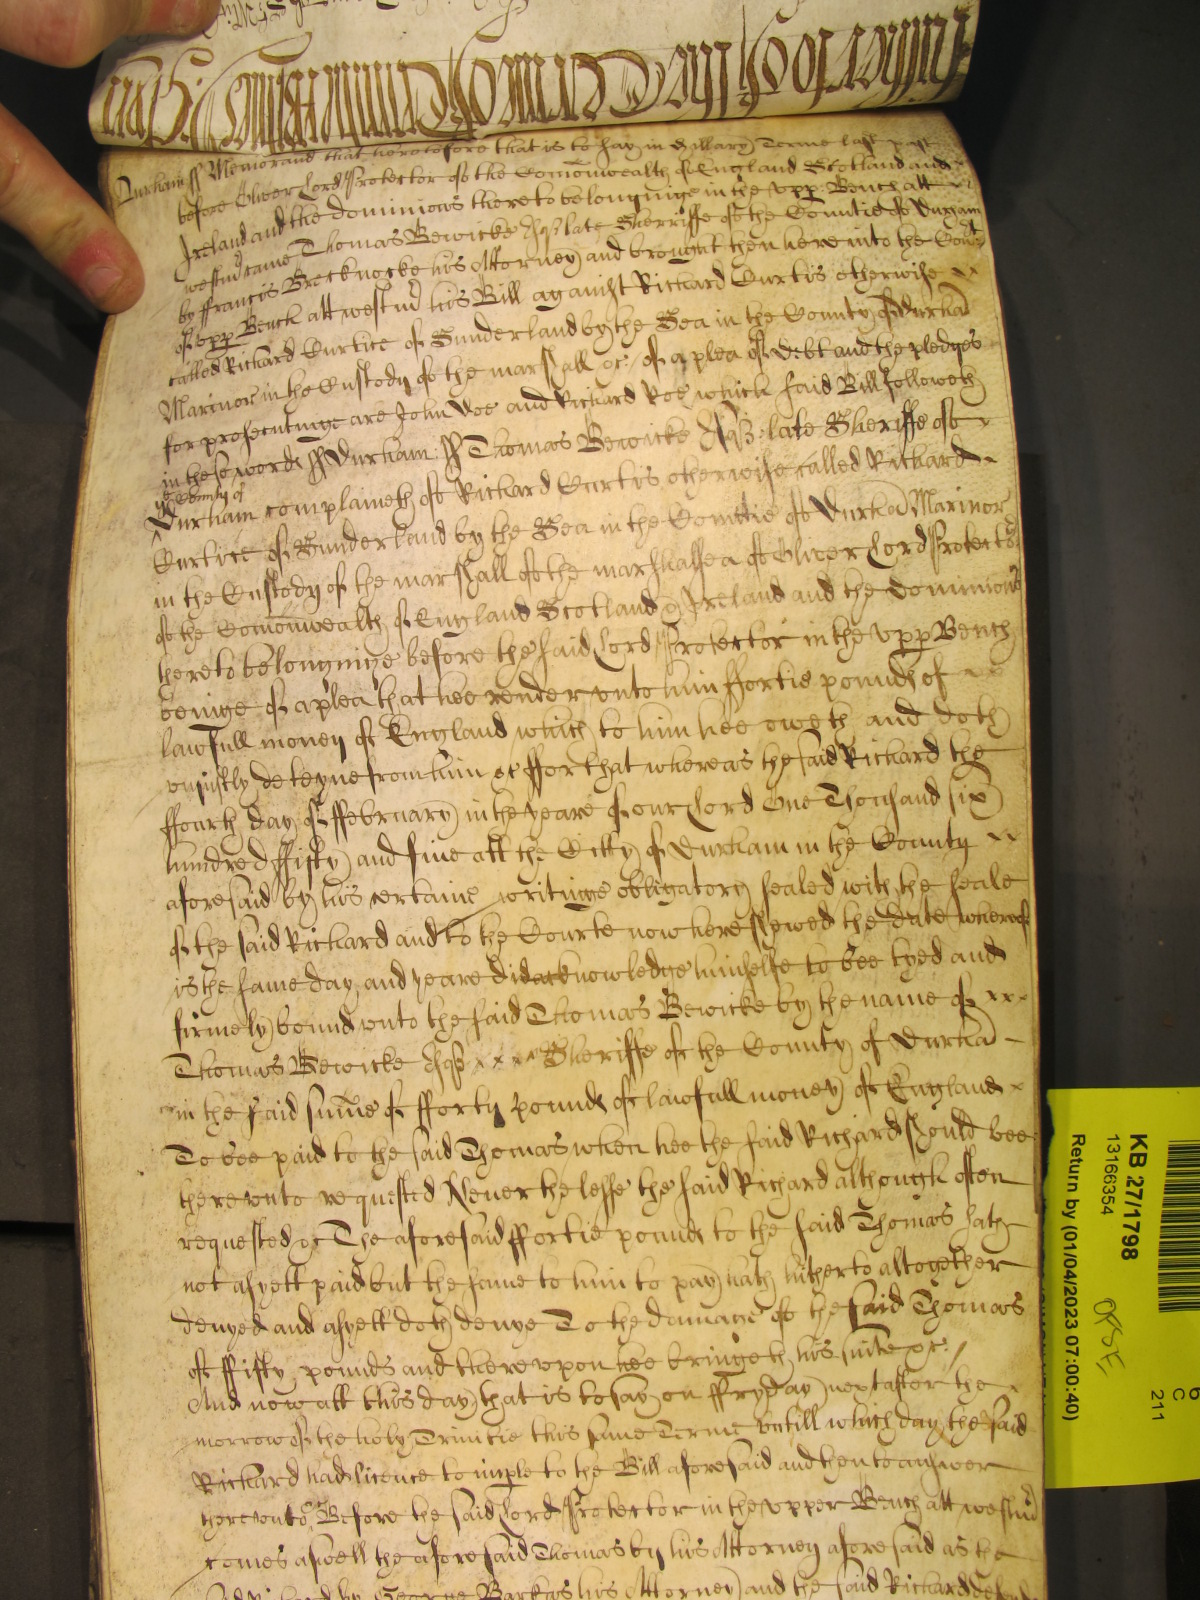 Durham ss Memorand that heretofore that is to say in Hillary Terme last past
before Oliver Lord Protector of the Comonwealth of England Scotland and
Ireland and the dominions thereto belonginge in the upp Bench att
westmr came Thomas Bewicke Esqr late Sherriffe of the Countie of Durham
by ffrancis Brecknocke his Attorney and brought then here into the Court
of upp Bench att westmr his Bill against Richard Curtis otherwise
called Richard Curtice of Sunderland by the Sea in the County of Durham
Marinor in the Custody of the marshall &c: of a plea of debt and the pledges
for prosecutinge are John Doe and Richard Roe which said Bill followeth
in these words ss Durham: ss Thomas Bewicke Esqr: late Sheriffe of
ye County of
Durham complaineth of Richard Curtis otherwise called Richard
Curtice of Sunderland by the Sea in the Countie of Durham Marinor
in the Custody of the marshall of the marshalsea of Oliver Lord Protector
of the Comonwealth of England Scotland & Ireland and the dominions
thereto belonginge before the said Lord Protector in the upp Bench
beinge of a plea that hee render unto him ffortie pounds of
lawfull money of England which to him hee oweth and doth
uniustly deteyne from him &c ffor that whereas the said Richard the
ffourth day of ffebruary in the yeare of our Lord One Thousand six
hundred ffifty and five att the Citty of Durham in the County
aforesaid by his certaine writinge obligatory sealed with the seale
of the said Richard and to the Courte now here shewed the date whereof
is the same day and yeare did acknowledge himselfe to bee tyed and
firmely bound unto the said Thomas Bewicke by the name of
Thomas Bewicke Esqr Sheriffe of the County of Durham
in the said sume of fforty pounds of lawfull money of England
To bee paid to the said Thomas when hee the said Richard should bee
thereunto requested Neverthelesse the said Richard although often
requested &c The aforesaid ffortie pounds to the said Thomas hath
not as yett paid but the same to him to pay hath hitherto altogether
denyed and as yett doth denye To the damage of the said Thomas
of ffifty pounds and thereupon hee bringeth his suite &c:
And now att this day that is to say on ffryday next after the
morrow of the holy Trinitie this same Terme untill which day the said
Richard had licence to imple to the Bill aforesaid and then to answer
thereunto &c Before the said Lord Protector in the upper Bench att westmr
comes aswell the aforesaid Thomas by his Attorney aforesaid as the
said Richard by George Barkas his Attorney and the said Richard
KB 27/1798
13166354
Return by (01/04/2023 07:00:40)
C
211